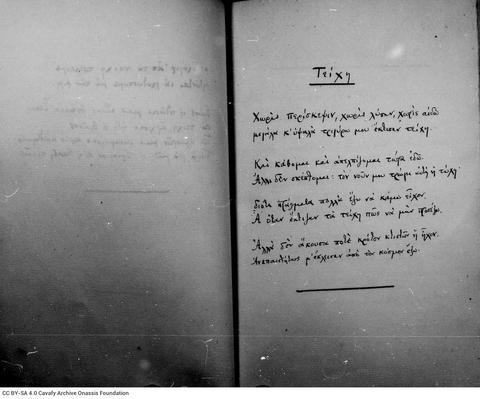 Τείχη
Χωρὶς περίσκεψιν, χωρὶς λύπην, χωρὶς αἰδὼ
μεγάλα κ' ὑψηλὰ τριγύρω μου ἔκτισαν τείχη.
Καὶ κάθομαι καὶ ἀπελπίζομαι τώρα ἐδῶ.
Ἄλλο δὲν σκέπτομαι: τὸν νοῦν μου τρώγει αὐτὴ ἡ τύχη·
διότι πράγματα πολλὰ ἔξω νὰ κάμω εἶχον.
Ἆ ὅταν ἔκτιζαν τὰ τείχη πῶς νὰ μὴν προσέξω.
Ἀλλὰ δὲν ἄκουσα ποτὲ κρότον κτιστῶν ἢ ἦχον.
Ἀνεπαισθήτως μ' ἔκλεισαν ἀπὸ τὸν κόσμον ἔξω.
CC BY-SA 4.0 Cavafy Archive Onassis Foundation